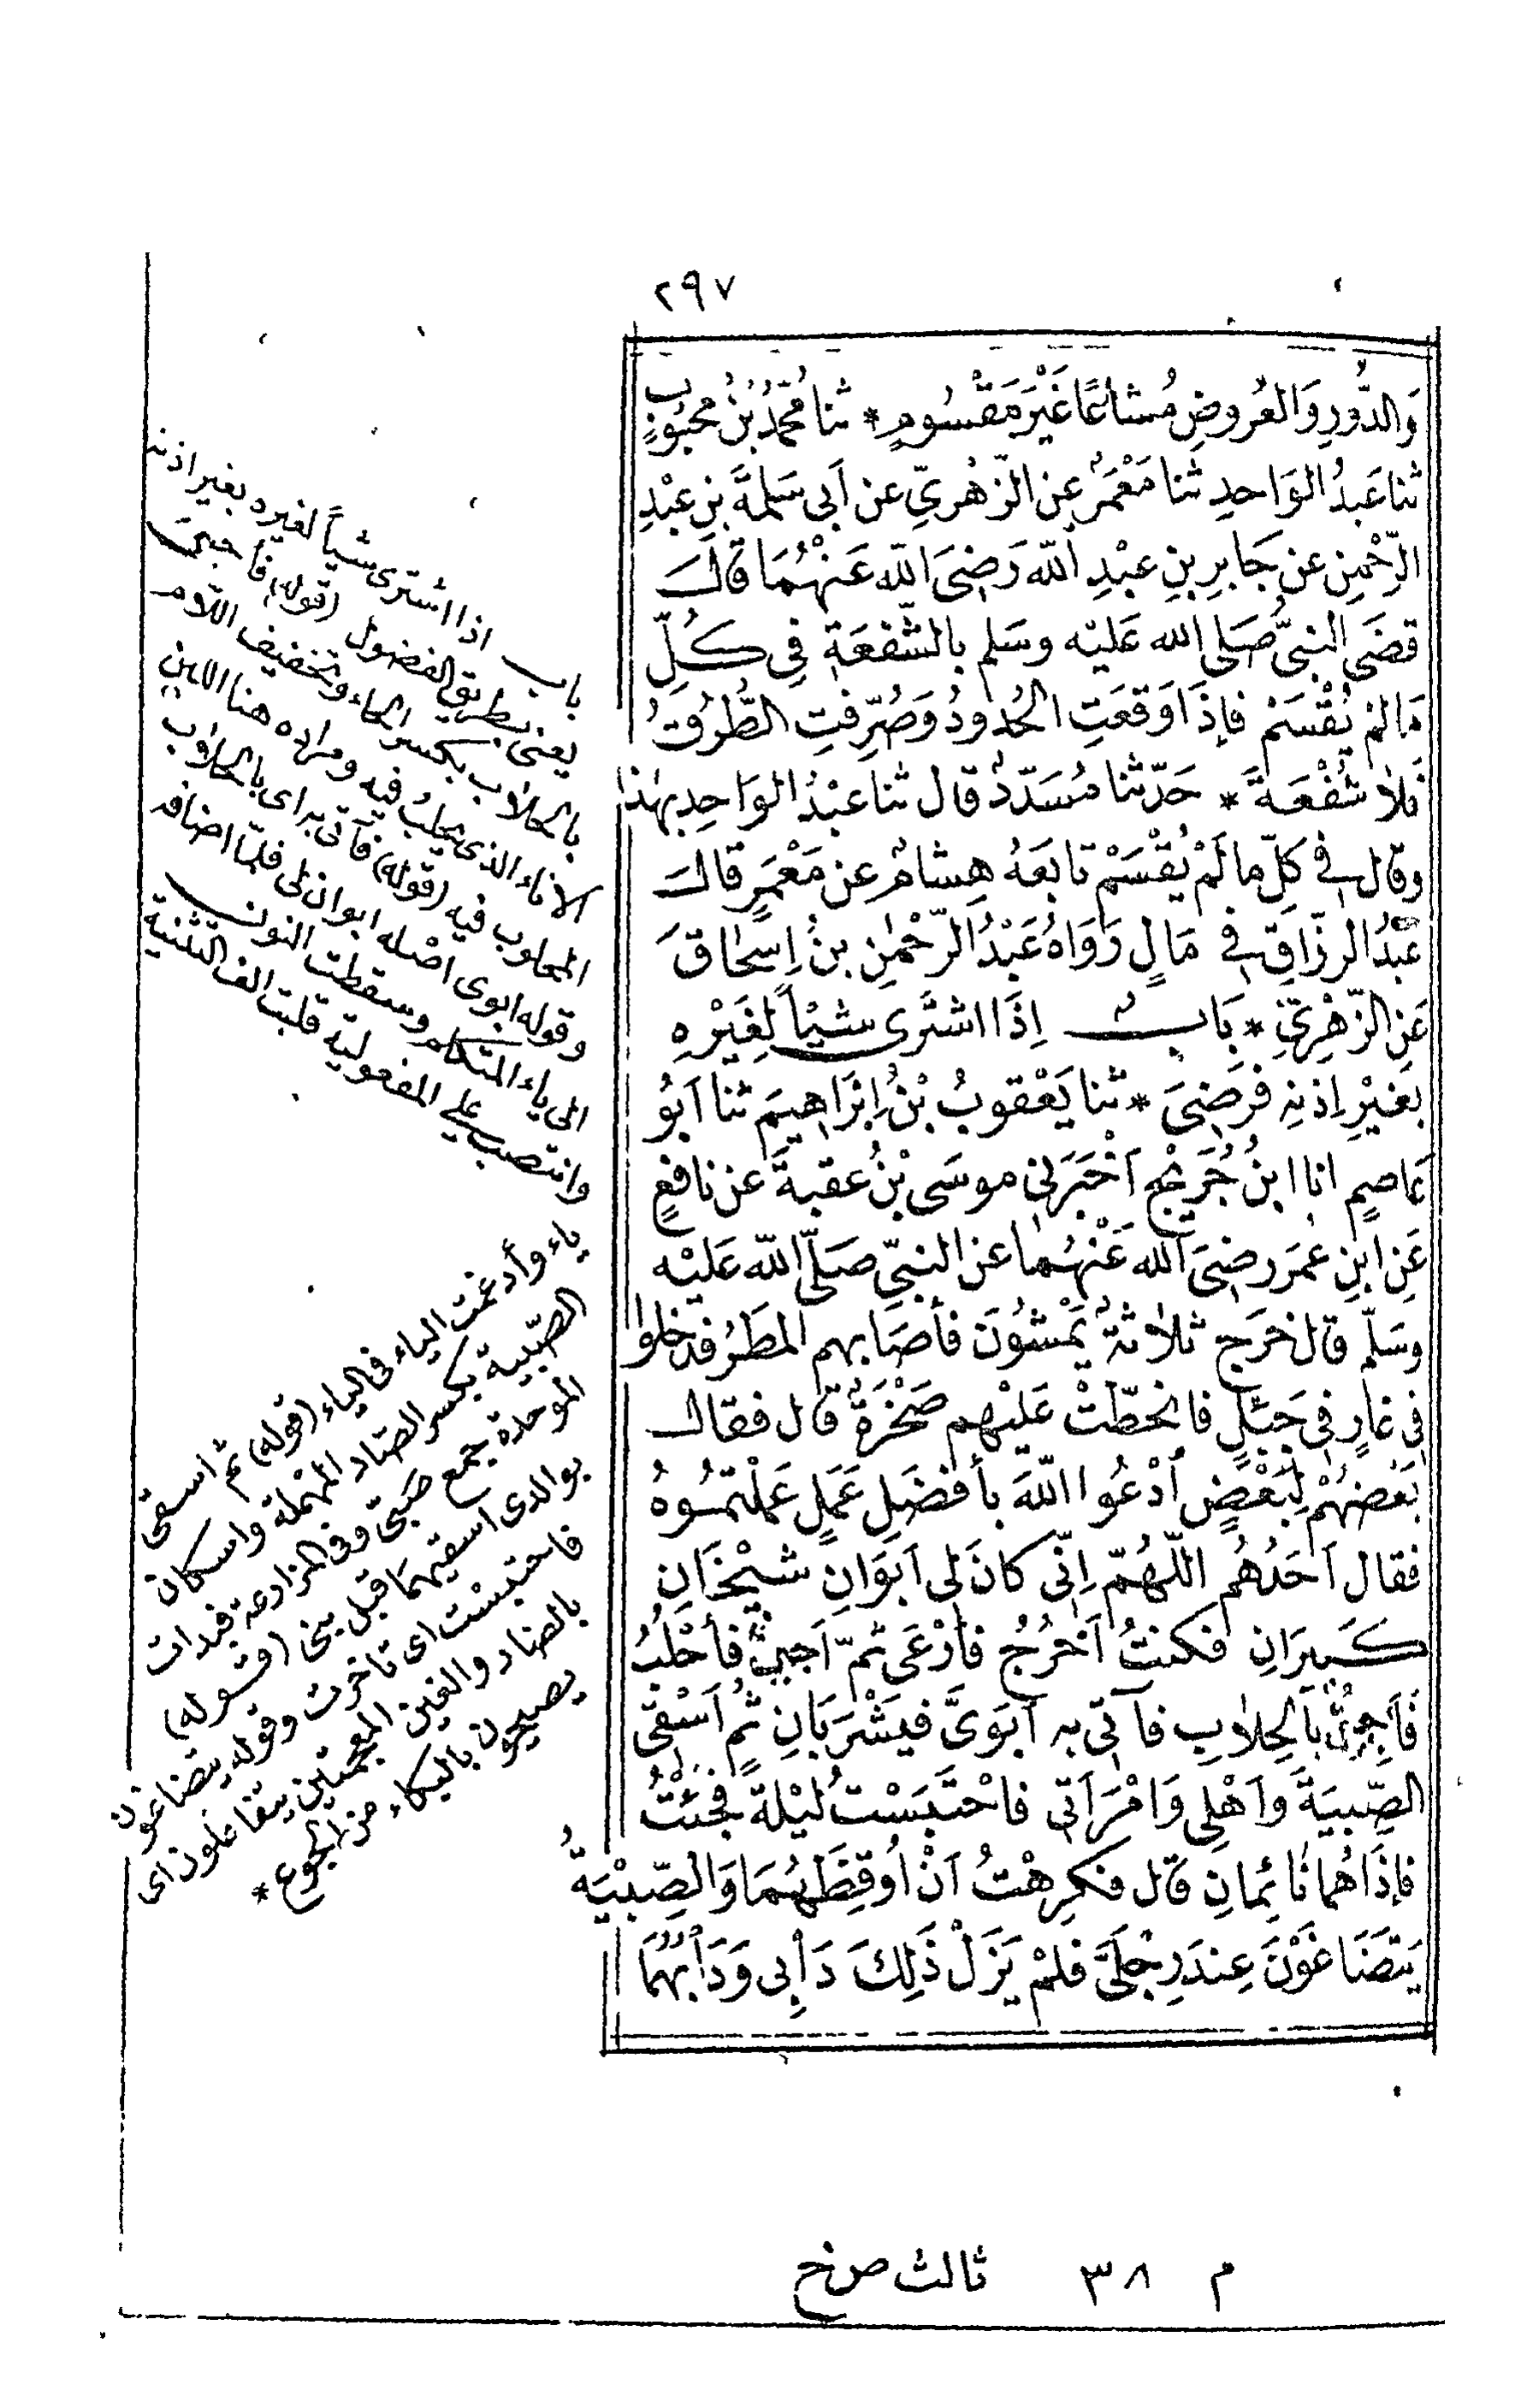 ٢٩٧
وَالدُّورِ وَالعُروضِ مُشاعًا غَيْرَ مَقْسُومٍ * ثنا مُحَمَّدُ بْنُ مَحْبُوبٍ
ثنا عَبدُ الوَاحدِ ثنا مَعْمَرٌ عن الزُّهْرِيِّ عن اَبى سَلمَةَ بنِ عبْدِ
الرَّحْمنِ عن جَابرِ بنِ عبْدِ اللّه رَضىَ اللّه عَنْهُمَا قالَ
قضَى النبىُّ صَلى الله عَليْه وسَلم بالشُّفعَةِ فِى كُلِّ
مَا لمْ يُقْسَمْ فإذَا وَقعَتِ الحُدودُ وَصُرِّفتِ الطُّرُقُ
فَلاَ شُفْعَةَ * حَدّثنا مُسَدّدٌ قال ثنا عبْدُ الوَاحِدِ بهٰذا
وقال فى كلّ ما لَمْ يُقْسَمْ تابَعَهُ هِشامٌ عن مَعْمَرٍ قالَ
عبْدُ الرزَّاقِ فى مَالٍ رَوَاهُ عَبْدُ الرَّحْمٰنِ بنُ اِسحٰاقَ
عَنِ الزُّهْرِىِّ * بَابٌ اِذَا اشتَرى شيْأً لغَيْرِهِ
بغيْرِ اِذنهِ فرَضىَ * ثنا يَعْقوبُ بْنُ اِبْرَاهيمَ ثنا اَبُو
عَاصمٍ انا ابنُ جُرَيْجٍ اَخْبَرَنى موسَى بْنُ عقبةَ عن نافعٍ
عَنِ ابنِ عمَرَ رضىَ اللّه عَنْهُما عن النبىِّ صَلّى اللّه عَليْه
وسَلّم قال خرَج ثلاثةٌ يَمْشُونَ فأصَابهم المطَرُ فدَخلوا
فِى غارٍ فِى جَبَلٍ فانحَطّتْ عَليْهِم صَخْرَةٌ قال فقال
بَعْضهُمْ لِبَعْضٍ اُدْعُوا اللّهَ بأفضَلِ عَمَلٍ عَمَلْتمُوهُ
فقال اَحَدُهُم اللّهُمّ اِنّى كانَ لى اَبَوَانِ شيْخَانِ
كَبيرَانِ فكنتُ اَخرُجُ فأَرْعَى ثمّ اَجيىُٔ فأحْلبُ
فَأجِىُٔ بالحِلاَبِ فآتى به اَبَوَىَّ فيَشْرَبَانِ ثُم اَسْقى
الصِّبيَةَ وَاَهْلى وَامْرَأتى فاحْتَبَسْتُ ليْلةً فجئتُ
فإذَا هُما نَائِمانِ قَال فكرِهْتُ اَنْ اُوقِظَهُمَا وَالصِّبْيَةُ
يَتضَاغَوْنَ عِندَ رِجْلَىَّ فلمْ يَزَلْ ذَلِكَ دَأْبِى وَدَأْبَهُمَا
باب اذا اشترى شيأً لغيره بغير اذنه
يعنى بطريق الفضول (قوله) فأجىئ
بالحلاب بكسر الحاء وتخفيف اللام
الاناء الذى يحلب فيه ومراده هنا اللبن
المحلوب فيه (قوله) فآتى به اى بالحلاب
وقوله ابوى اصله ابوان لى فلما اضافه
الى ياء المتكلم وسقطت النون
وانتصب على المفعولية قلبت الف التثنية
ياء وأدغمت الياء فى الياء (قوله) ثم اسقى
الصبية بكسر الصاد المهملة واسكان
الموحدة جمع صبىّ وفى المزارعة فبدات
بوالدى اسقيهما قبل بنى (قوله)
فاحتبست اى تأخرت وقوله يتضاغون
بالضاد والغين المعجمتين يتفاعلون اى
يصيحون بالبكاء من الجوع *
م ٣٨ ثالث ص خ